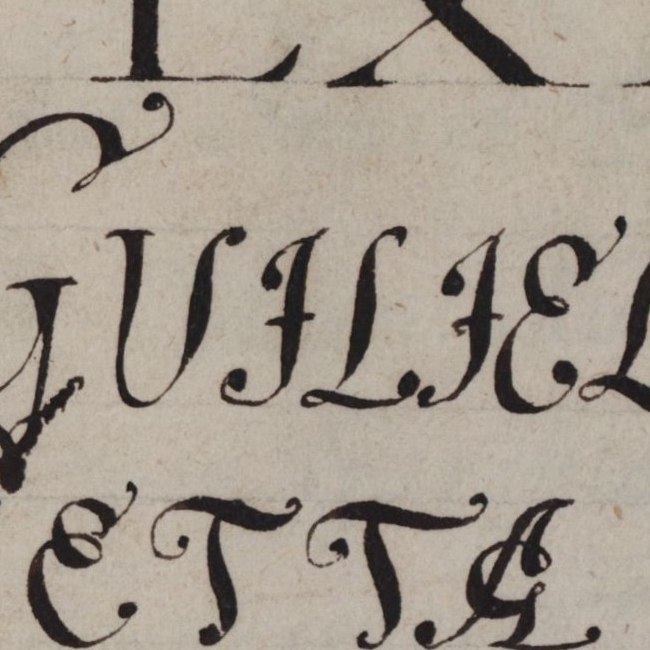 LX
GUILIEL
ETTA